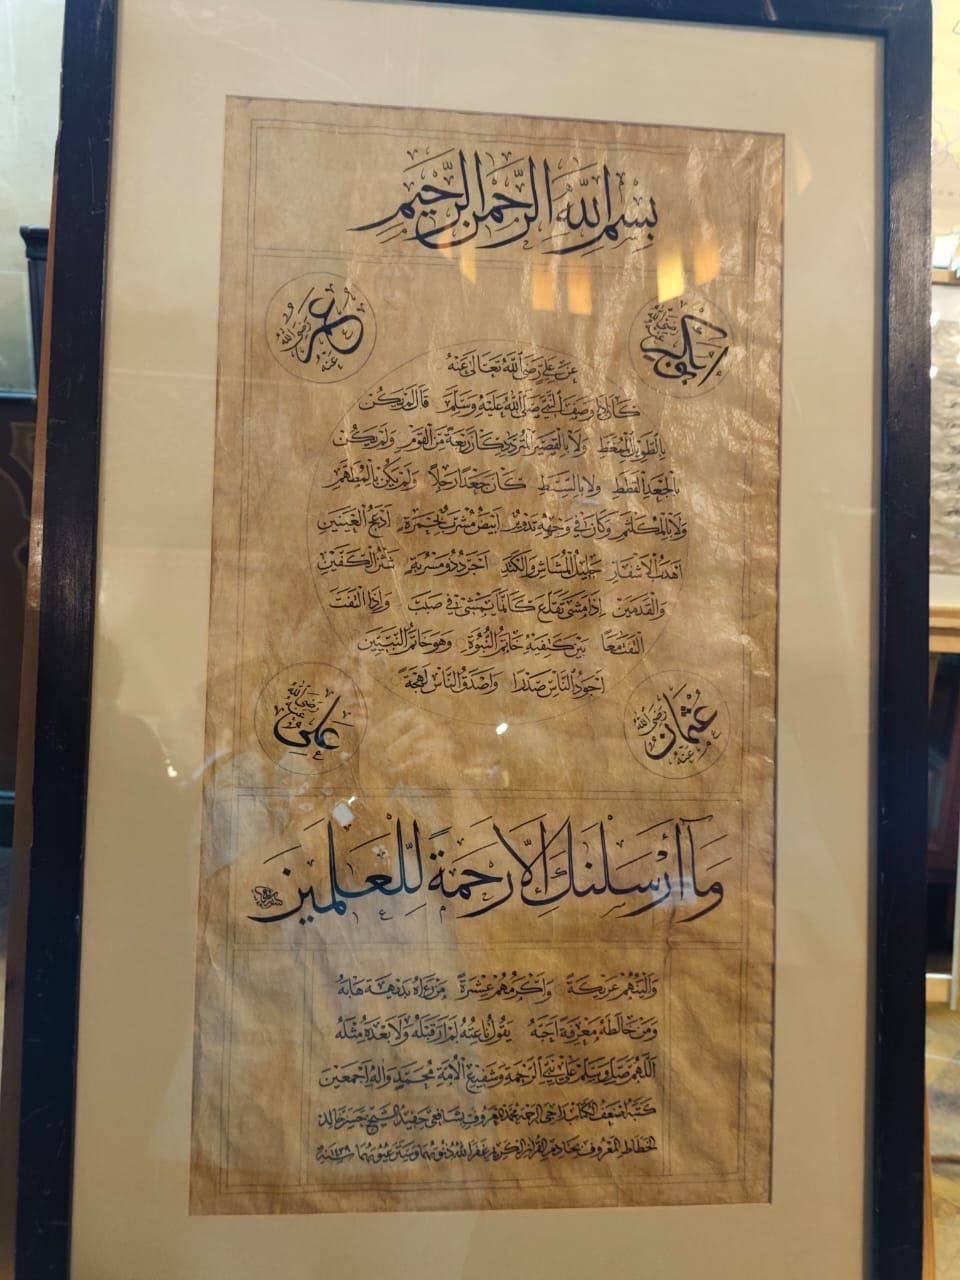 بِسْمِ اللَّهِ الرَّحْمَنِ الرَّحِيمِ
ابو بكر رضي الله عنه
عمر رضي الله عنه
عَنْ عَلِيٍّ رَضِيَ اللَّهُ تَعَالَى عَنْهُ
كَانَ إِذَا وَصَفَ النَّبِيَّ صَلَّى اللَّهُ عَلَيْهِ وَسَلَّمَ قَالَ لَمْ يَكُنْ
بِالطَّوِيلِ الْمُمَغَّطِ وَلَا بِالْقَصِيرِ الْمُتَرَدِّدِ كَانَ رَبْعَةً مِنَ الْقَوْمِ وَلَمْ يَكُنْ
بِالْجَعْدِ الْقَطَطِ وَلَا بِالسَّبْطِ كَانَ جَعْدًا رَجِلًا وَلَمْ يَكُنْ بِالْمُطَهَّمِ
وَلَا بِالْمُكَلْثَمِ وَكَانَ فِي وَجْهِهِ تَدْوِيرٌ أَبْيَضُ مُشْرَبٌ بِحُمْرَةٍ أَدْعَجُ الْعَيْنَيْنِ
أَهْدَبُ الْأَشْفَارِ جَلِيلُ الْمُشَاشِ وَالْكَتَدِ أَجْرَدُ ذُو مَسْرُبَةٍ شَثْنُ الْكَفَّيْنِ
وَالْقَدَمَيْنِ إِذَا مَشَى تَقَلَّعَ كَأَنَّمَا يَمْشِي فِي صَبَبٍ وَإِذَا الْتَفَتَ
الْتَفَتَ مَعًا بَيْنَ كَتِفَيْهِ خَاتَمُ النُّبُوَّةِ وَهُوَ خَاتَمُ النَّبِيِّينَ
أَجْوَدُ النَّاسِ صَدْرًا وَأَصْدَقُ النَّاسِ لَهْجَةً
عُثْمَان رَضِيَ اللَّهُ عَنْهُ
علي رضي الله عنه
وَمَا أَرْسَلْنَكَ إِلَّا رَحْمَةً لِلْعَلَمِينَ
وَأَلْيَنُهُمْ عَرِيكَةً وَأَكْرَمُهُمْ عِشْرَةً مَنْ رَآهُ بَدِيهَةً هَابَهُ
وَمَنْ خَالَطَهُ مَعْرِفَةً أَحَبَّهُ يَقُولُ نَاعِتُهُ لَمْ أَرَ قَبْلَهُ وَلَا بَعْدَهُ مِثْلَهُ
اَللَّهُمَّ صَلِّ وَسَلِّمْ عَلَى نَبِيِّ الرَّحْمَةِ وَشَفِيعِ الْأُمَّةِ مُحَمَّدٍ وَآلِهِ أَجْمَعِينَ
كَتَبَهُ أَضْعَفُ الْكُتَّابِ رَاجِي الرَّحْمَةِ مُحَمَّد الْمَعْرُوف بِشَافِعِي حَفِيدُ الشَّيْخِ حَسَن خَالِد
الْخَطَّاط الْمَعْرُوف بِخَادِمِ الْقُرْآنِ الْكَرِيمِ غَفَرَ اللَّهُ ذُنُوبَهُمَا وَسَتَرَ عُيُوبَهُمَا سنة